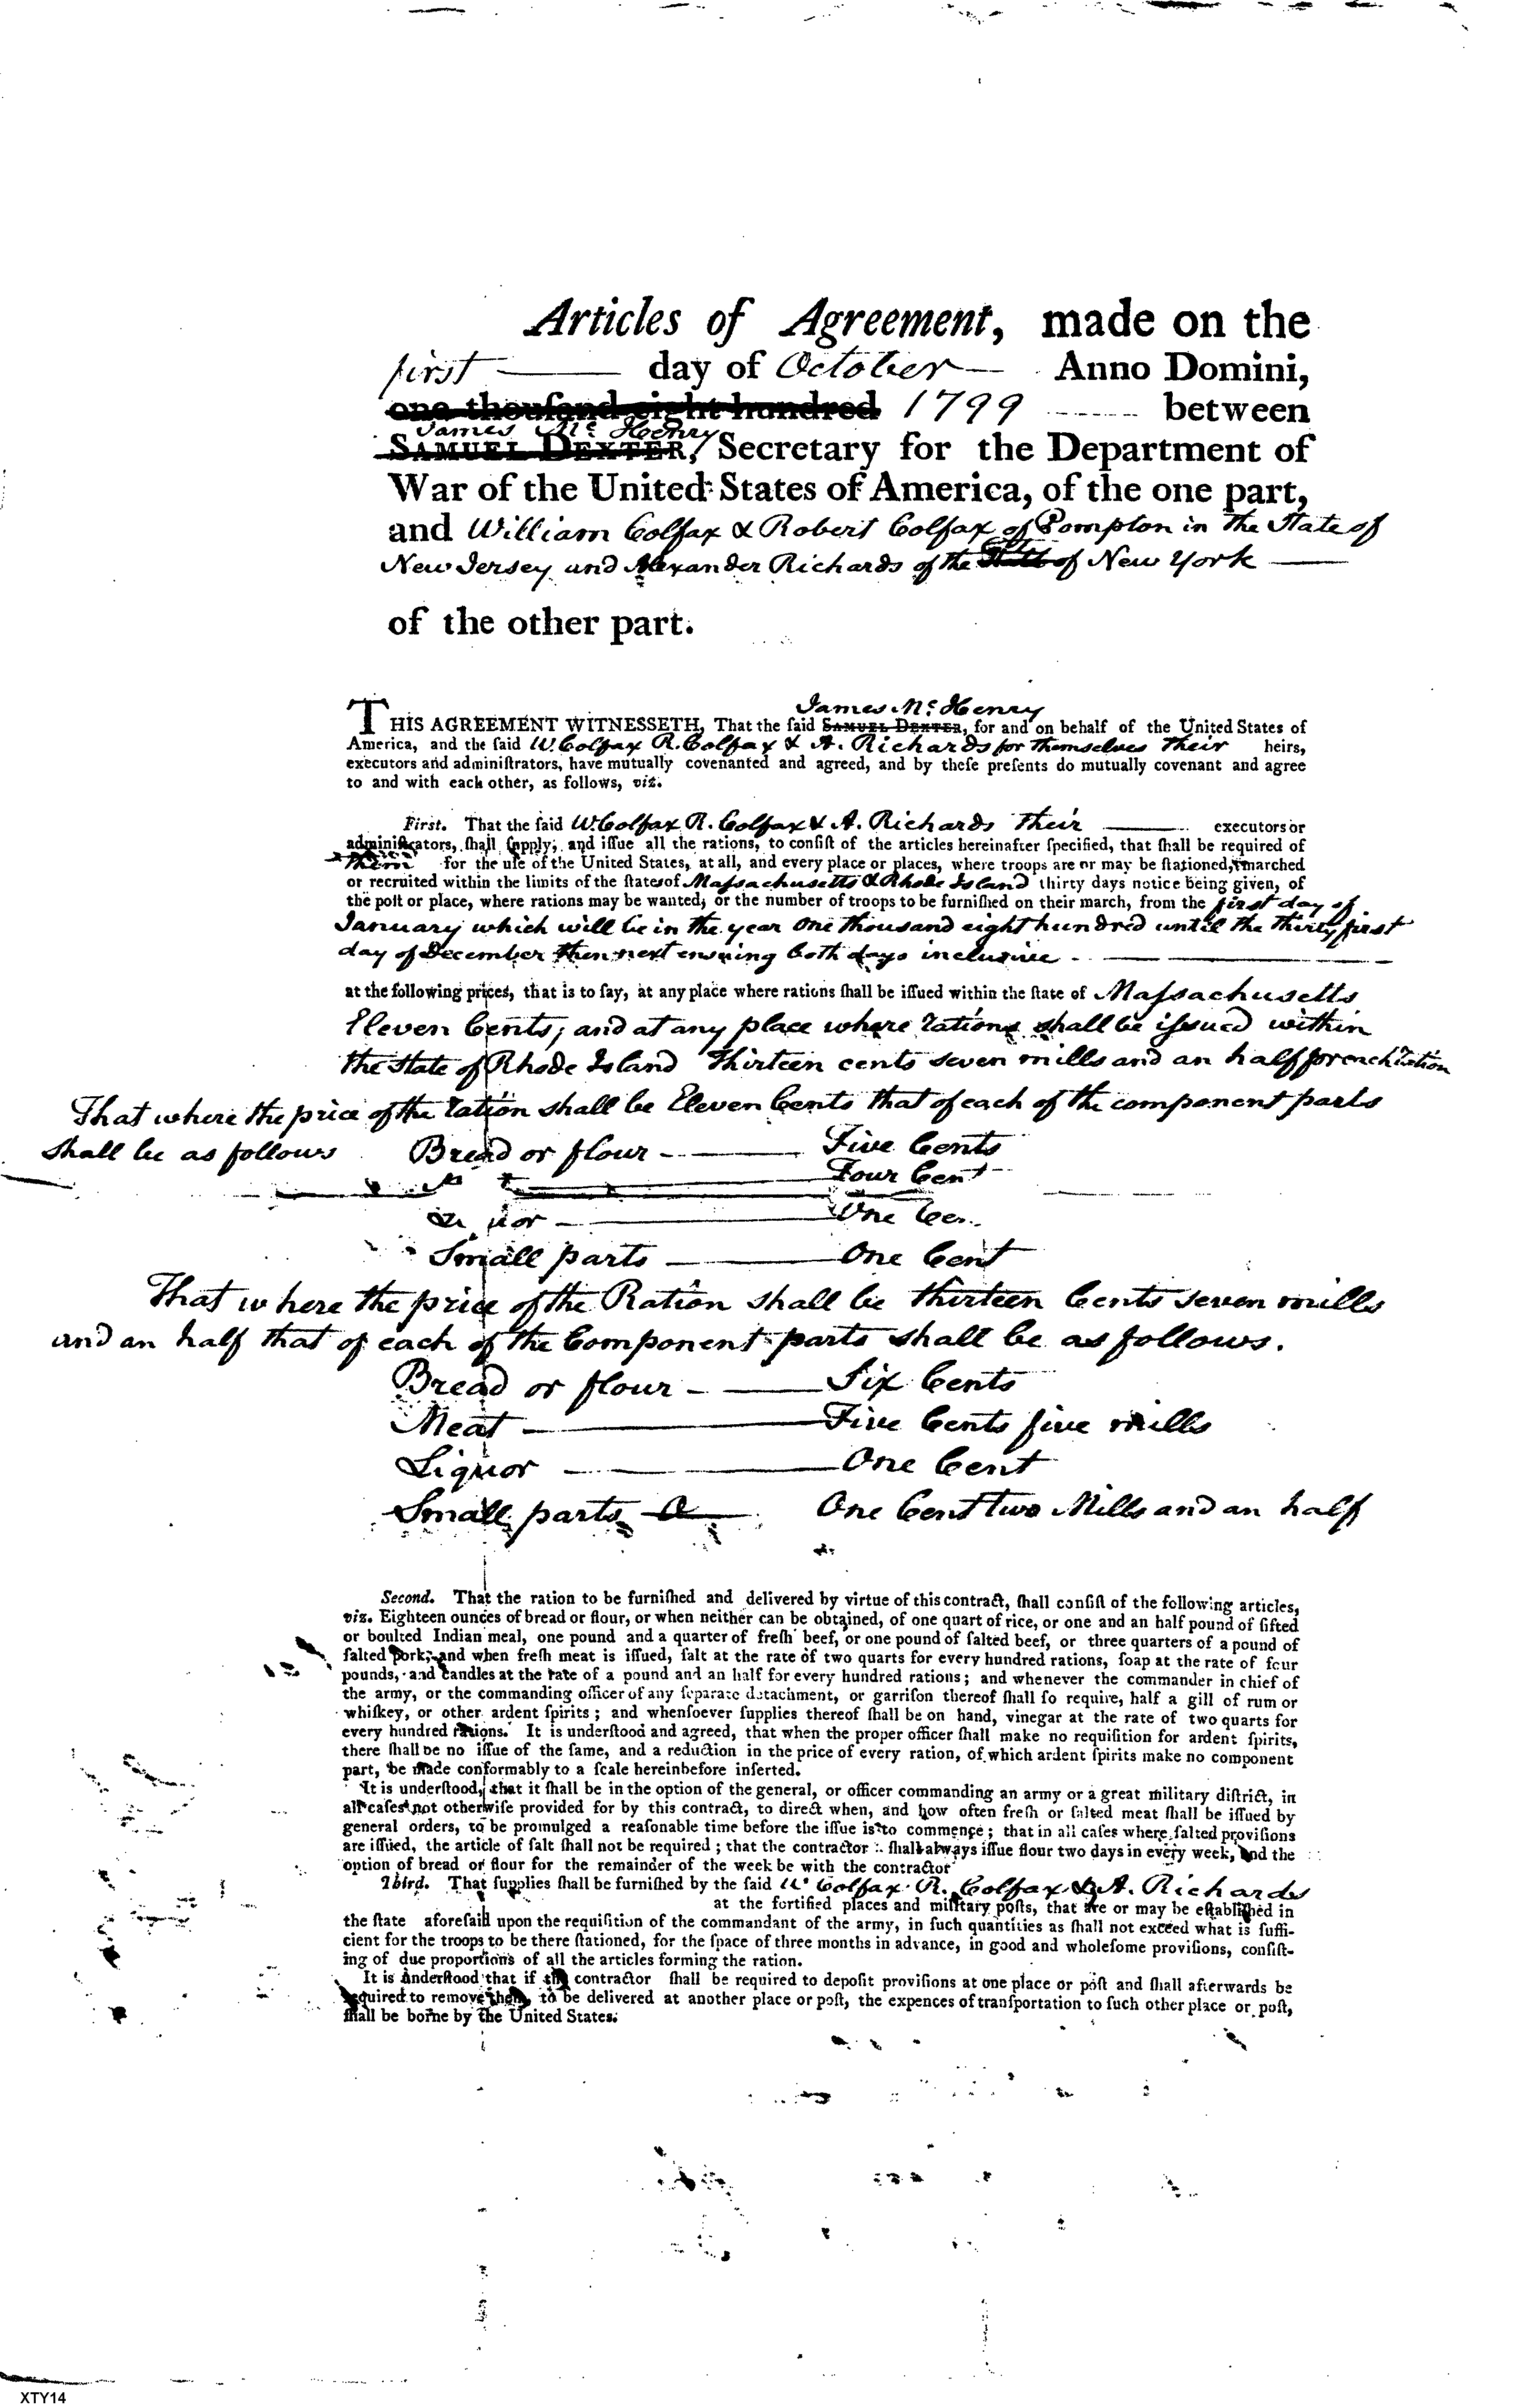 Articles of Agreement, made on the
first day of October Anno Domini,
one thouſand eight hundred 1799 between
James Mc Henry
SAMUEL DEXTER, Secretary for the Department of
War of the United States of America, of the one part,
and William Colfax & Robert Colfax of Pompton in the State of
New Jersey and Alexander Richards of the City of New York
of the other part.
James Mc Henry
THIS AGREEMENT WITNESSETH, That the ſaid SAMUEL DEXTER, for and on behalf of the United States of
America, and the ſaid W. Colfax R. Colfax & A. Richards for themselves their heirs,
executors and adminiſtrators, have mutually covenanted and agreed, and by theſe preſents do mutually covenant and agree
to and with each other, as follows, viz.
First. That the ſaid W Colfax R. Colfax & A. Richards their executors or
adminiſtrators, ſhall ſupply, and iſſue all the rations, to conſiſt of the articles hereinafter ſpecified, that ſhall be required of
them for the uſe of the United States, at all, and every place or places, where troops are or may be ſtationed, marched
or recruited within the limits of the ſtates of Maſsachusetts & Rhode Island thirty days notice being given, of
the poſt or place, where rations may be wanted, or the number of troops to be furniſhed on their march, from the first day of
January which will be in the year One thousand eight hundred until the thirty first
day of December then next ensuing both days inclusive
at the following prices, that is to ſay, at any place where rations ſhall be iſſued within the ſtate of Maſsachusetts
Eleven Cents; and at any place where rations shall be iſsued within
the State of Rhode Island Thirteen cents seven mills and an half for each ration
That where the price of the ration shall be Eleven Cents that of each of the component parts
shall be as follows Bread or flour Five Cents
Four Cent
One Cen
Small parts One Cent
That where the price of the Ration shall be thirteen Cents seven mills
and an half that of each of the Component parts shall be as follows.
Bread or flour Six Cents
Meat Five Cents five mills
Liquor One Cent
Small parts One Cent two Mills and an half
Second. That the ration to be furniſhed and delivered by virtue of this contract, ſhall conſiſt of the following articles,
viz. Eighteen ounces of bread or flour, or when neither can be obtained, of one quart of rice, or one and an half pound of ſifted
or boulted Indian meal, one pound and a quarter of freſh beef, or one pound of ſalted beef, or three quarters of a pound of
ſalted pork; and when freſh meat is iſſued, ſalt at the rate of two quarts for every hundred rations, ſoap at the rate of four
pounds, and candles at the rate of a pound and an half for every hundred rations; and whenever the commander in chief of
the army, or the commanding officer of any ſeparate detachment, or garriſon thereof ſhall ſo require, half a gill of rum or
whiſkey, or other ardent ſpirits; and whenſoever ſupplies thereof ſhall be on hand, vinegar at the rate of two quarts for
every hundred rations. It is underſtood and agreed, that when the proper officer ſhall make no requiſition for ardent ſpirits,
there ſhall be no iſſue of the ſame, and a reduction in the price of every ration, of which ardent ſpirits make no component
part, be made conformably to a ſcale hereinbefore inſerted.
It is underſtood, that it ſhall be in the option of the general, or officer commanding an army or a great military diſtrict, in
all caſes not otherwiſe provided for by this contract, to direct when, and how often freſh or ſalted meat ſhall be iſſued by
general orders, to be promulged a reaſonable time before the iſſue is to commence; that in all caſes where ſalted proviſions
are iſſued, the article of ſalt ſhall not be required; that the contractor ſhall always iſſue flour two days in every week, and the
option of bread or flour for the remainder of the week be with the contractor
Third. That ſupplies ſhall be furniſhed by the ſaid W Colfax R. Colfax & A. Richards
at the fortified places and military poſts, that are or may be eſtabliſhed in
the ſtate aforeſaid upon the requiſition of the commandant of the army, in ſuch quantities as ſhall not exceed what is ſuffi-
cient for the troops to be there ſtationed, for the ſpace of three months in advance, in good and wholeſome proviſions, conſiſt-
ing of due proportions of all the articles forming the ration.
It is underſtood that if the contractor ſhall be required to depoſit proviſions at one place or poſt and ſhall afterwards be
required to remove them, to be delivered at another place or poſt, the expences of tranſportation to ſuch other place or poſt,
ſhall be borne by the United States.
XTY14